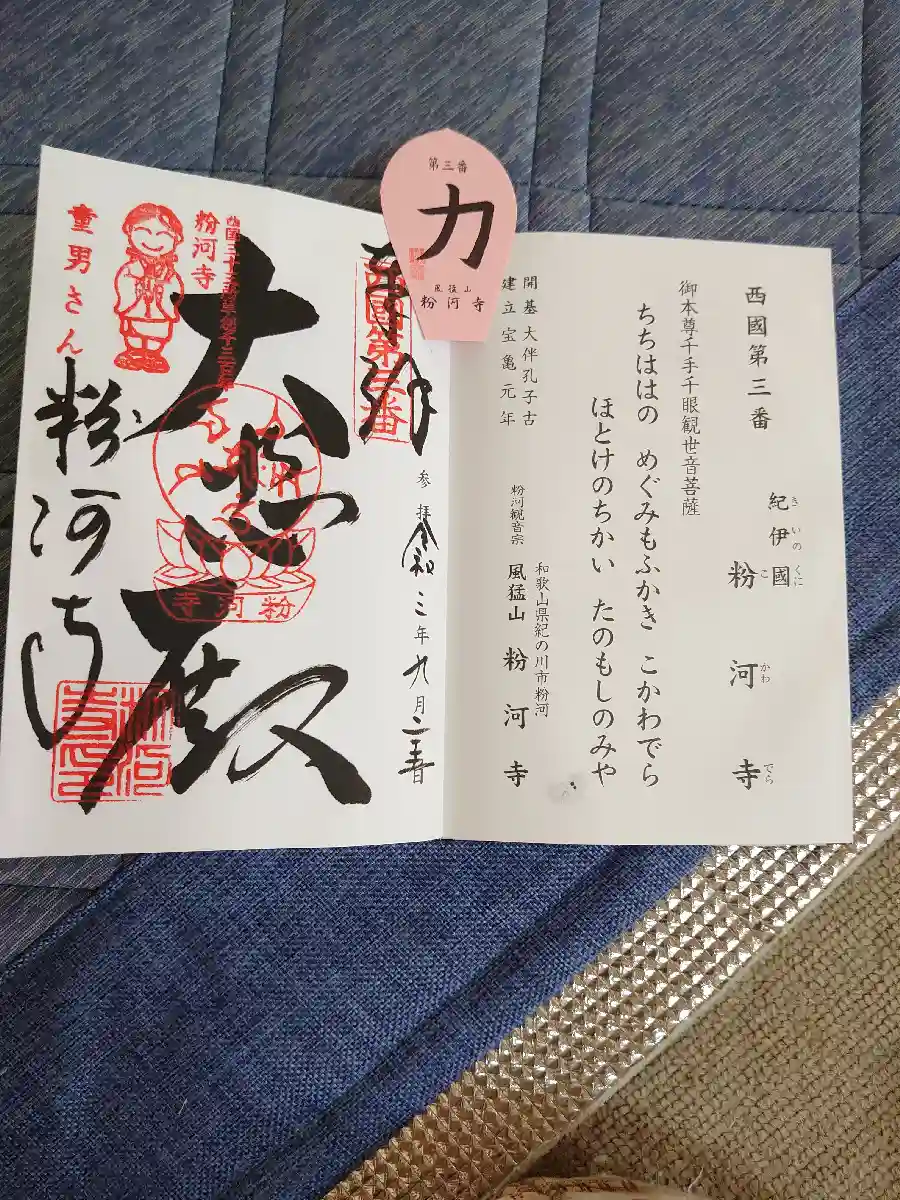 西國第三番
紀伊國
きいのくに
粉河寺
こかわでら
御本尊千手千眼観世音菩薩
ちちははの めぐみもふかき こかわでら
ほとけのちかい たのもしのみや
開基 大伴孔子古
建立 宝亀元年
和歌山県紀の川市粉河
粉河観音宗 風猛山 粉河寺
第三番
力
風猛山
粉河寺
奉拝
西國第三番
参拝 令和三年九月二十二日
大悲殿
粉河寺
粉河寺
粉河寺
童男さん
粉河寺